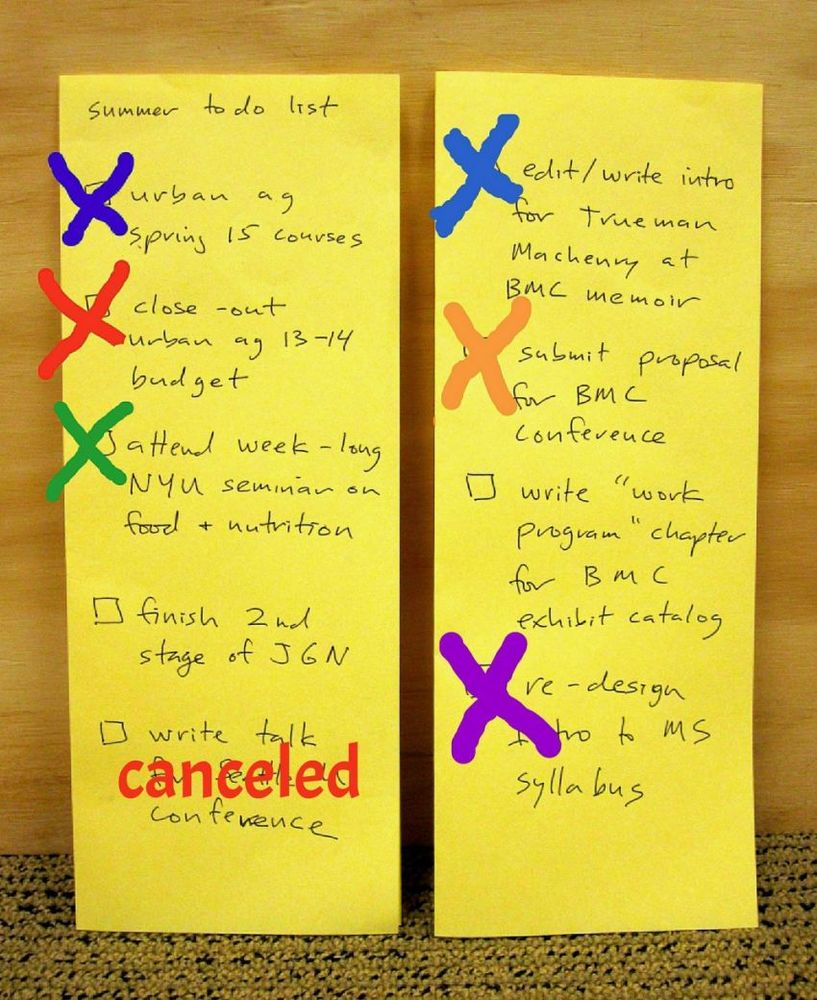 summer to do list
urban ag
spring 15 courses
close-out
urban ag 13-14
budget
attend week-long
NYU seminar on
food + nutrition
finish 2nd
stage of JGN
write talk
canceled
conference
edit/write intro
for Trueman
Machenry at
BMC memoir
submit proposal
for BMC
conference
write "work
program" chapter
for BMC
exhibit catalog
re-design
to MS
syllabus